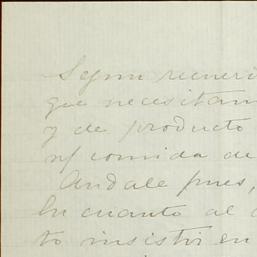 Segun recuerd
que necesitam
y de producto
n/ comida de
Andale pues,
En cuanto al
to insistir en